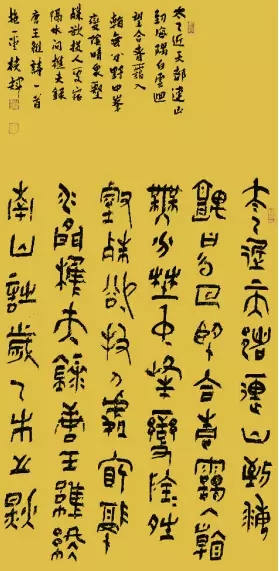 太乙近天都連山
到海隅白雲迴
望合青靄入
看無分野中峯
變陰晴衆壑
殊欲投人處宿
隔水問樵夫錄
唐王維詩一首
太乙近天都連山到海
隅白雲迴望合青靄入看
無分野中峯變陰晴衆
壑殊欲投人處宿隔
水問樵夫錄唐王維終
南山詩歲乙未